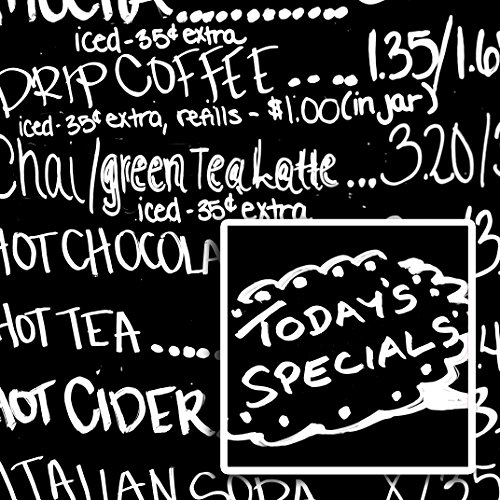 MOCHA..........
iced - 35¢ extra
DRIP COFFEE .... 1.35/1.6
iced - 35¢ extra, refills - $1.00 (in jar)
Chai/green Tea Latte ... 3.20/3
iced - 35¢ extra
HOT CHOCOLA
HOT TEA .....
HOT CIDER
ITALIAN SODA
TODAY'S
SPECIALS